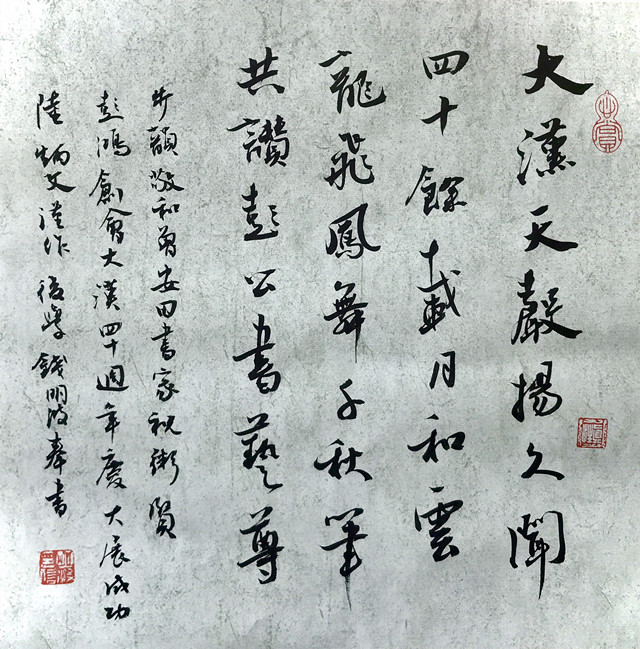 大漢天聲揚久聞
四十餘載月和雲
龍飛鳳舞千秋筆
共讚彭公書藝尊
步韻敬和曾安田書家祝鄉賢
彭鴻創會大漢四十週年慶大展成功
陸炳文謹作後學錢明波奉書